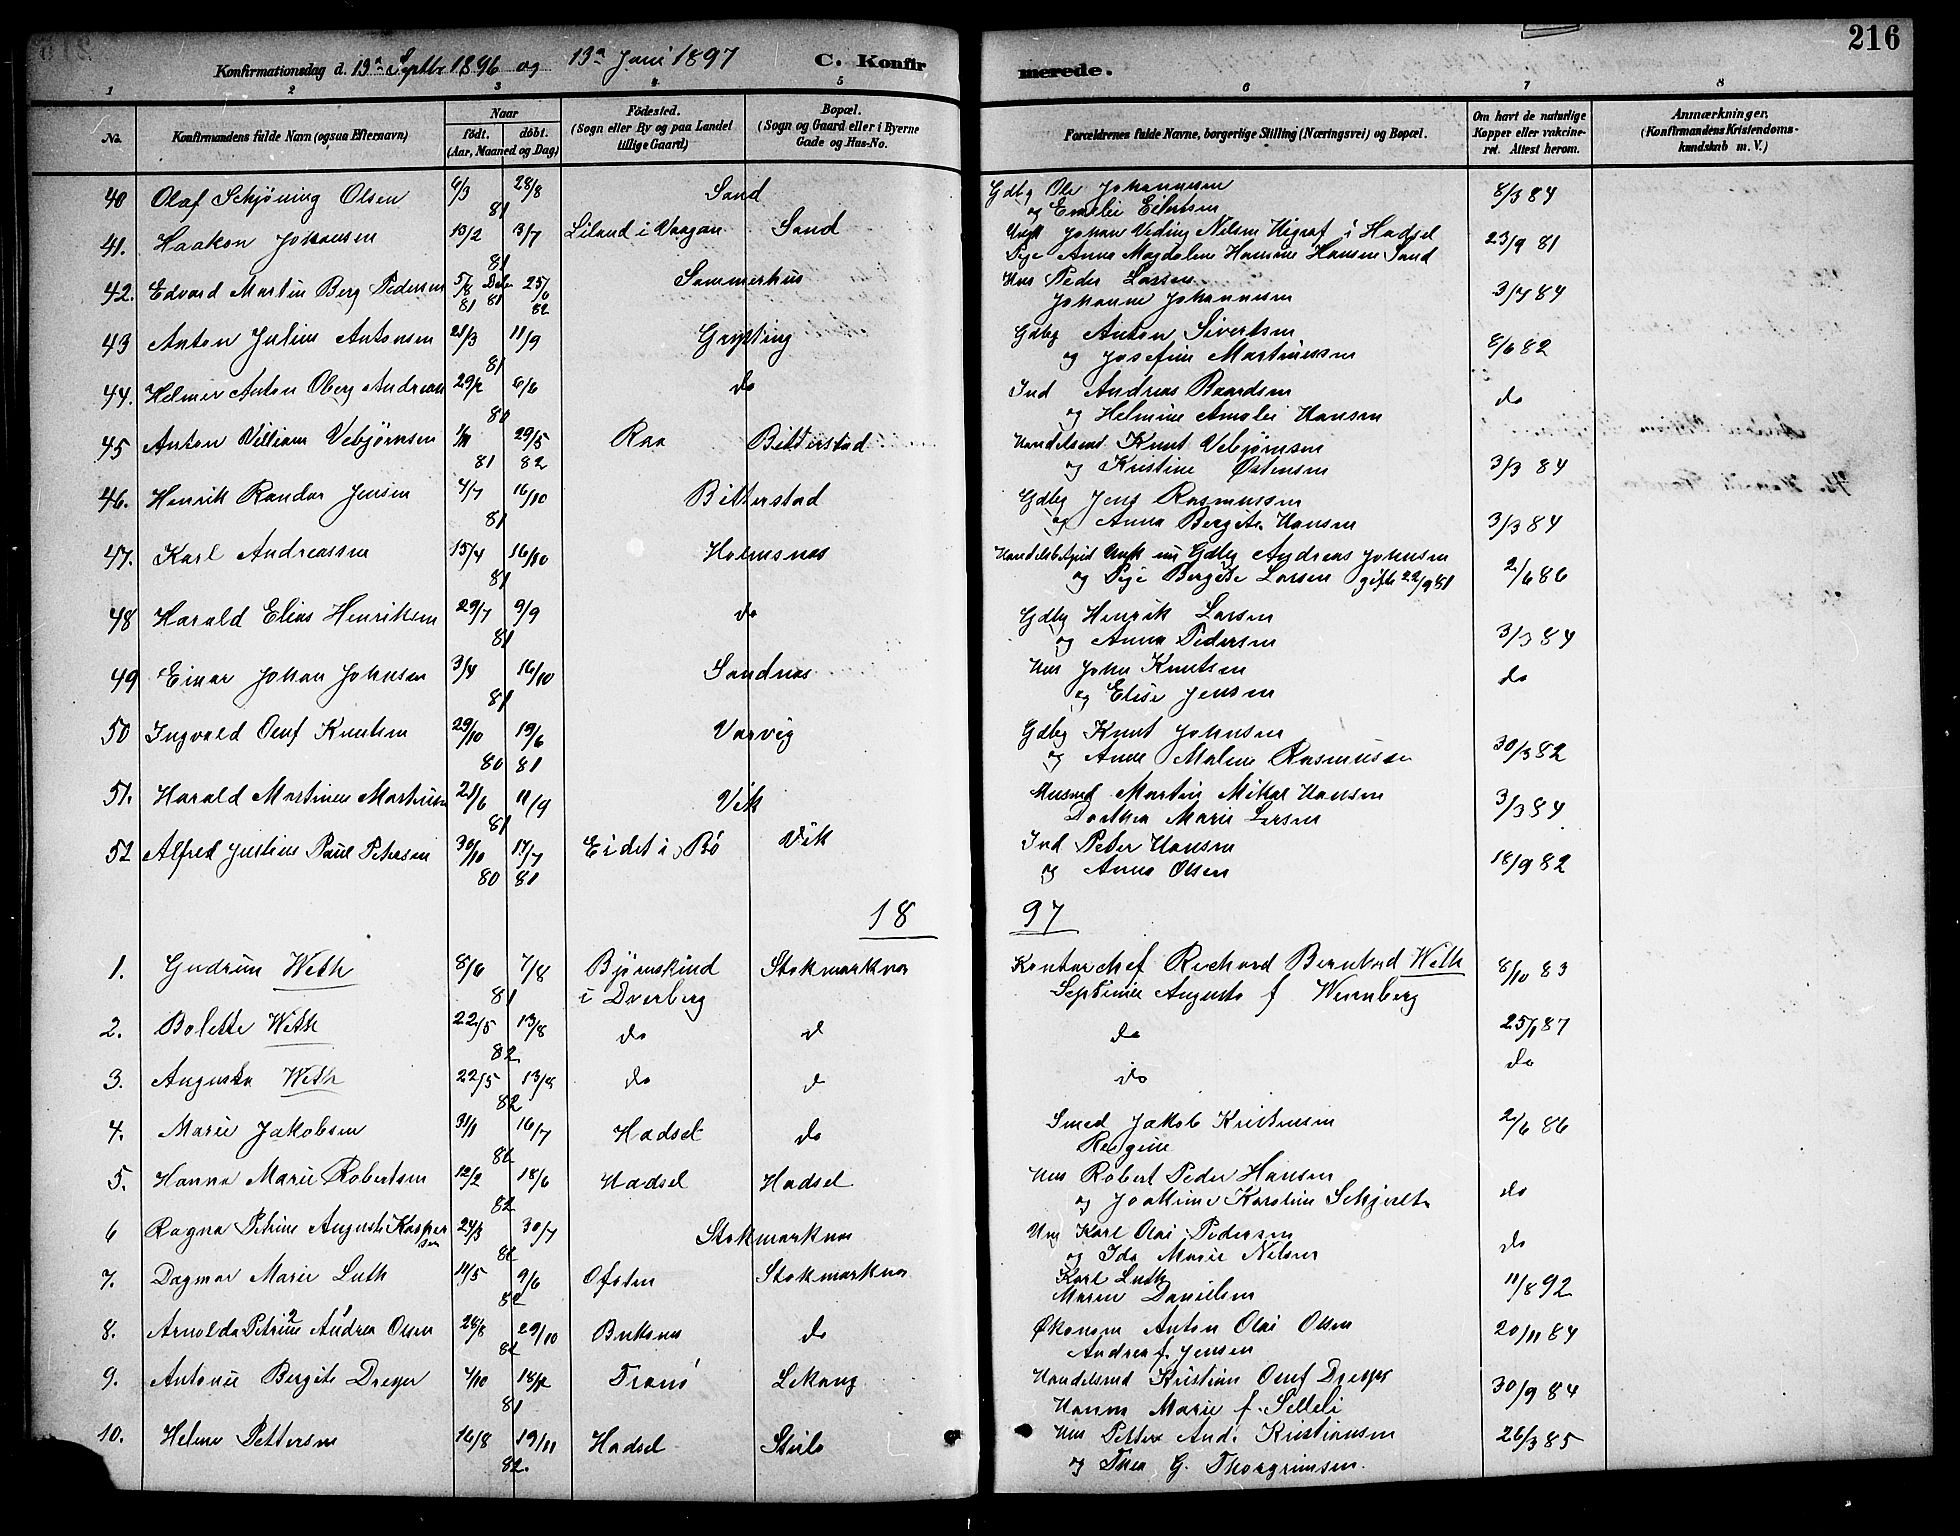 216
Konfirmationsdag d. 13de Septbr 1896 og 13de Juni 1897 C. Konfirmerede.
1 2 3 4 5 6 7 8
No. Konfirmandens fulde Navn (ogsaa Efternavn) Naar født. døbt. (Aar, Maaned og Dag) Fødested. (Sogn eller By og paa Landet tillige Gaard) Bopæl. (Sogn og Gaard eller i Byerne Gade og Hus-No. Forældrenes fulde Navne, borgerlige Stilling (Næringsvei) og Bopæl. Om havt de naturlige Kopper eller vakcineret. Attest herom. Anmærkninger. (Konfirmandens Kristendomskundskab m. V.)
40 Olaf Schjøning Olsen 6/3 81 28/8 Sand Gdbg Ole Johannesen og Emelie Eilertsen 8/3 84
41. Haakon Johansen 13/2 81 3/7 Liland i Vaagan Sand Ungk Johan Viding Nilsen Higraf i Hadsel Pige Anne Magdalene Hansen Sand 23/9 81
42. Edvard Martin Berg Pedersen 5/8 81 25/6 82 Sommerhus Hus Peder Larsen Johanne Johannesen 3/4 84
43 Anton Julius Antonsen 21/3 81 11/9 Grytting Gdbg Anton Sivertsen og Josefine Martinussen 8/6 82
44. Helmer Anton Oberg Andreas 29/2 80 6/6 do Ind Andreas Baardsen og Helmine Amalie Hansen do
45 Anton Villiam Vebjørnsen 1/11 81 29/5 82 Raa Bitterstad Handelsmd Knut Vebjørnsen og Kristine Østensen 3/3 84
46. Henrik Randor Jensen 4/7 81 16/10 Bitterstad Gdbg Jens Rasmussen og Anna Bergete Hansen 3/3 84
47. Karl Andreassen 15/4 81 16/10 Holmsnes Ungk nu Gdbg Andreas Johnsen og Pige Bergete Larsen gifte 22/9 81 2/6 86
48 Harald Elias Henriksen 29/7 81 9/9 do Gdbg Henrik Larsen og Anna Pedersen 3/3 84
49 Einar Johan Johnsen 3/4 81 16/10 Sandnes Hus John Knutsen og Elise Jensen do
50 Ingvald Oluf Knutsen 29/10 80 19/6 81 Varvig Gdbg Knut Johnsen og Anne Malene Rasmussen 30/3 82
51. Harald Martinus Martinsen 25/6 81 11/9 Vik Husmd Martin Mikal Hansen Dorthea Marie Larsen 3/3 84
52 Alfred Justin Paul Petersen 30/10 80 17/7 81 Eidet i Bø Vik Ind Peter Hansen og Anna Olsen 18/9 82
1897
1. Gudrun Weth 8/6 81 7/8 Bjørnskind i Dverberg Stokmarknes Kontorchef Richard Bernhard Weth Septimie Augusta f Wennberg 8/10 83
2. Bolette Weth 22/5 82 13/8 do d do 25/1 87
3. Augusta Weth 22/5 82 13/8 do d do do
4. Marie Jakobsen 31/1 82 16/7 Hadsel do Smed Jakob Kristensen Regine 2/6 86
5. Hanna Marie Robertsen 12/2 82 18/6 Hadsel Hadsel Hus Robert Peder Hansen og Joakime Karoline Schjelt do
6 Ragna Petrine Augusta Kaspersen 24/3 82 30/7 Stokmarknes Hus Karl Olai Pedersen og Ida Marie Nelsen do
7. Dagmar Marie Luth 11/5 82 9/6 Ofoten Stokmarknes Karl Luth Maren Danielsen 11/8 92
8. Arnolda Petrine Andrea Olsen 28/8 82 29/10 Buksnes do Økonom Anton Olai Olsen Andrea f. Jensen 20/11 84
9. Antonie Bergite Dreyer 4/10 81 18/12 Tranø Lekang Handelsmd Kristian Oluf Dreyer Hanna Marie f. Selleli 30/9 84
10. Helene Pettersen 16/8 82. 19/11 Hadsel Steilo Hus Petter And. Kristiansen og Thea G. Thorgrimsen. 26/3 85